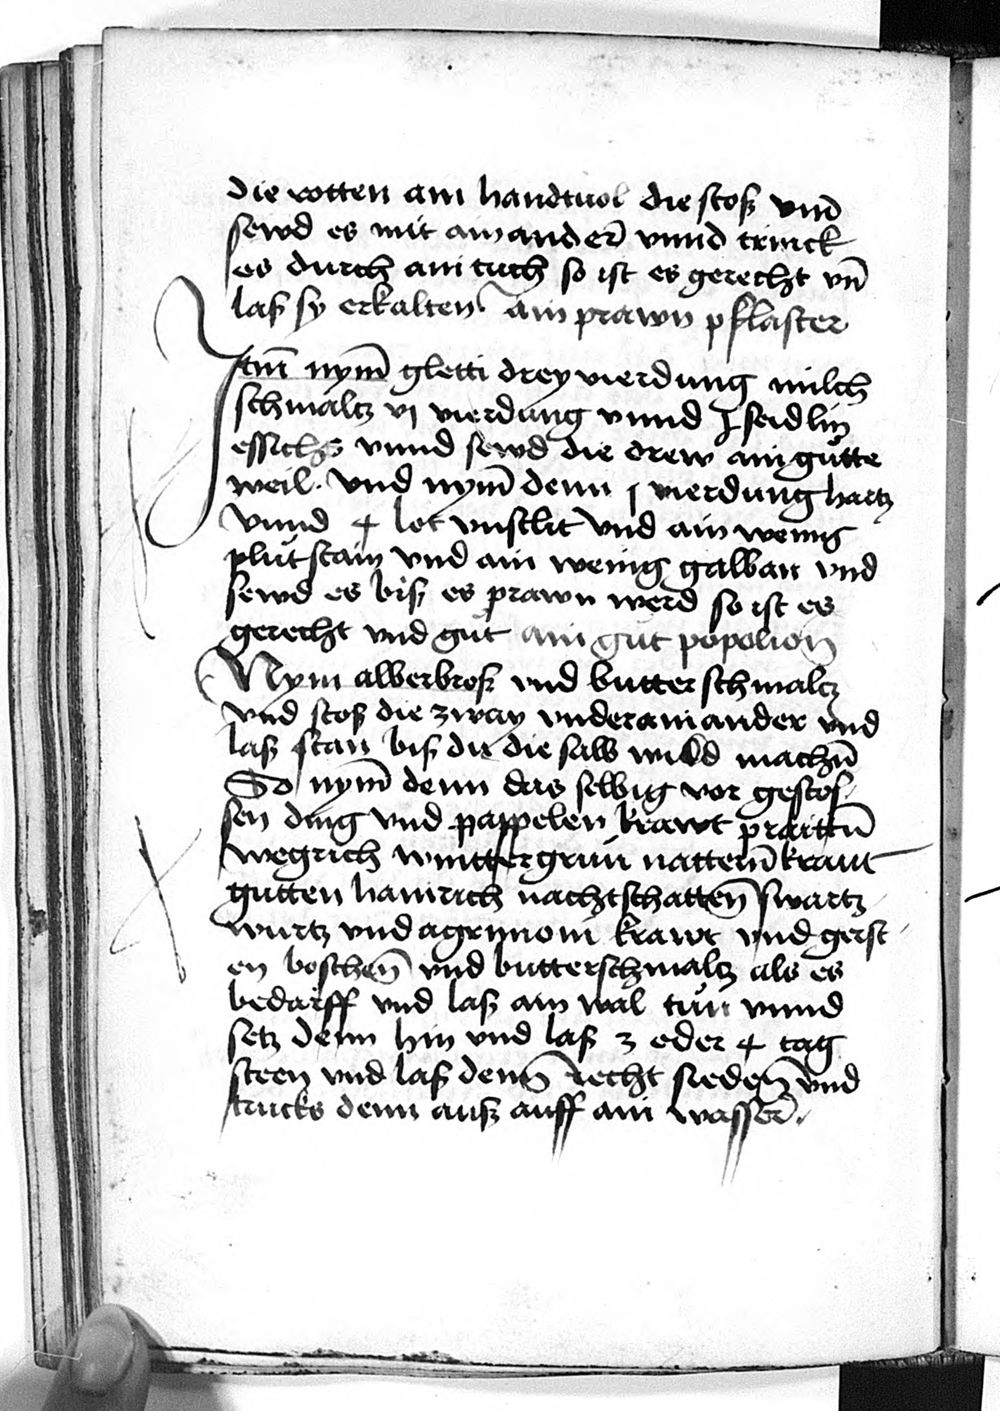 die rotten ain handtuol die stosß vnd̄
sewd es mit ainander̄ vnnd trinck
es durch ain tuch so ist es gerecht vn̄
laß sy erkalten ain prawn pflaster
Itm̄ nym̄ gletti drey vierdung milch
schmaltz vj vierdung vnnd j seidlin
essichs vnnd sewd die drew ain gůtte
weil. Vnd nym̄ denn j vierdung hartz
Vnnd 4 lot vnslit Vnd ain wenig
plůtstain vnd ain wenig galban vnd
sewd es biß es prawn werd so ist es
gerecht vnd gůt ain gůt popolion
Nym alberbroß vnd butterschmaltz
vnd stoß die zway vnderainander vnd
laß stan biß du die salb wild machn̄
So nym̄ denn das selbig vor gestos
sen ding vnd pappelen krawt praittn̄
wegrich winttergrün nattern̄ kraut
gutten hainrich nachtschatten̄ swartz
wurtz vnd agrimoni krawt vnd gerst
en boschen̄ vnd butterschmaltz als es
bedarff vnd laß ain wal tůn vnnd
setz denn hin vnd laß 3 oder 4 tag
steen vnd laß denn̄ recht sieden̄ vnd
trucks denn auß auff ain wasser̄.